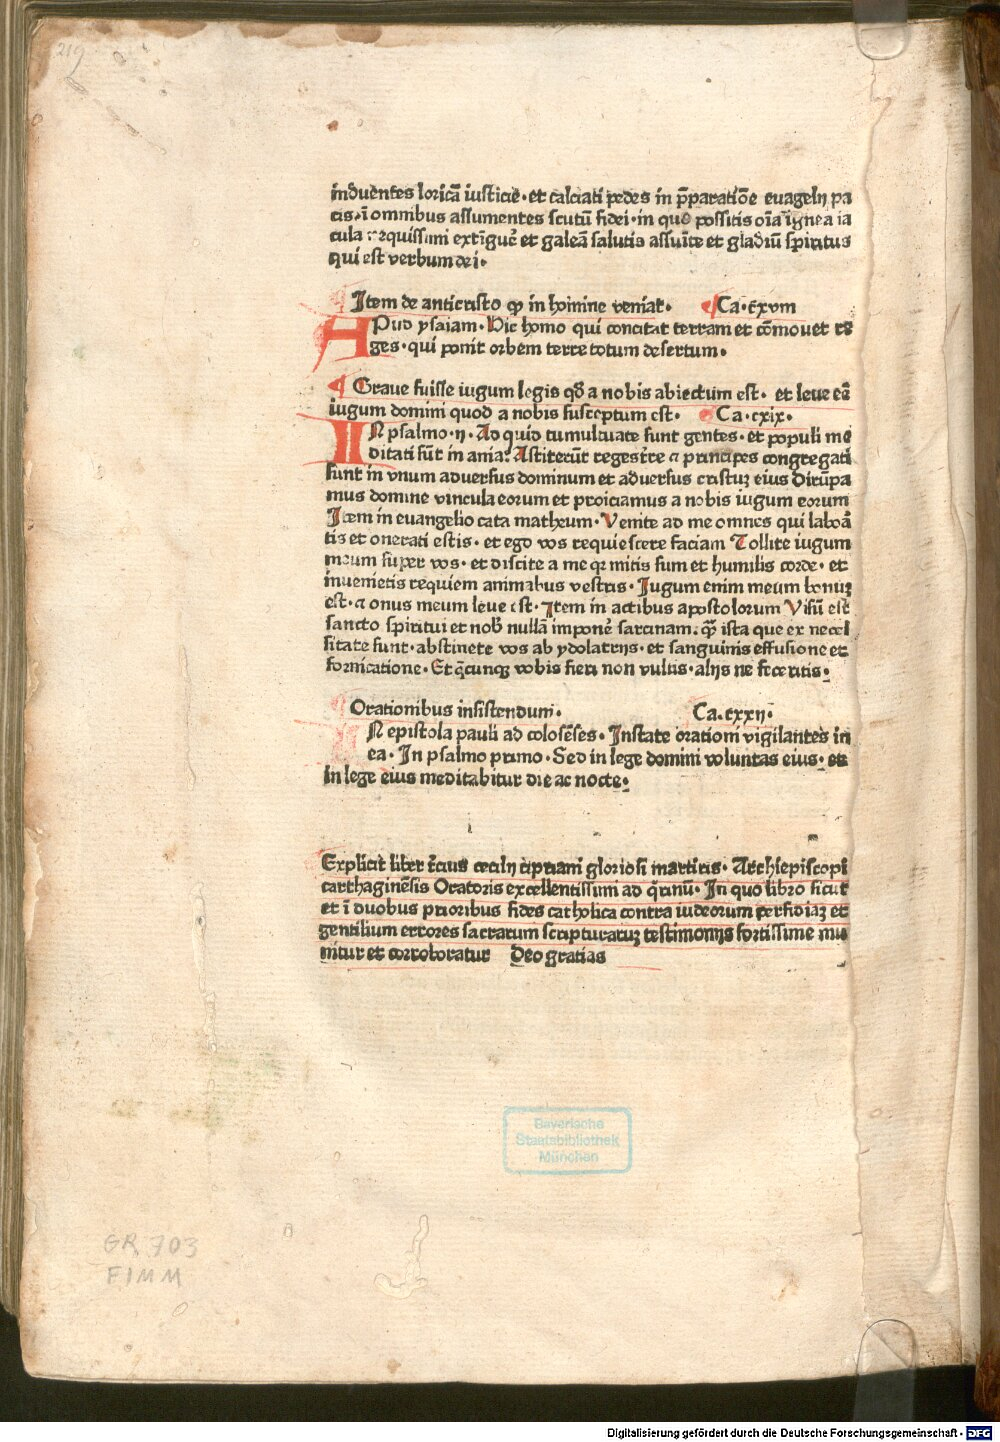 219
induentes loricā iusticie · et calciati pedes in p̄paratiōe euāgelij pa
cis · ī omnibus assumentes scutū fidei · in quo possitis oīa ignea ia
cula nequissimi extīguē et galeā salutis assumīte et gladiū spiritus
qui est verbum dei ·
¶ Item de anticristo ꝙ in homine veniat · ¶ Ca · cxviii
APud ysaiam · Hic homo qui concitat terram et cōmouet re
ges · qui ponit orbem terre totum desertum ·
¶ Graue fuisse iugum legis qd̄ a nobis abiectum est · et leue eē
iugum domini quod a nobis susceptum est · ¶ Ca · cxix ·
IN psalmo · ij · Ad quid tumultuate sunt gentes · et populi me
ditati sūt in ania? Astiterūt reges tr̄e ⁊ principes congregati
sunt in vnum aduersus dominum et aduersus cristuȝ eius dirūpa
mus domine vincula eorum et proiciamus a nobis iugum eorum
Item in euangelio cata matheum · Venite ad me omnes qui laborā
tis et onerati estis · et ego vos requiescere faciam Tollite iugum
meum super vos · et discite a me qꝛ mitis sum et humilis corde · et
inuenietis requiem animabus vestris · Iugum enim meum bonuȝ
est · ⁊ onus meum leue est · Item in actibus apostolorum Visū est
sancto spiritui et nob̄ nullā imponē sarcinam · ꝙ̄ ista que ex necel
sitate sunt · abstinete vos ab ydolatrijs · et sanguinis effusione et
fornicatione · Et q̄cunqȝ vobis fieri non vultis · alijs ne feceritis ·
¶ Orationibus insistendum · Ca · cxxij ·
IN epistola pauli ad colosēses · Instate orationi vigilantes in
ea · In psalmo primo · Sed in lege domini voluntas eius · et
in lege eius meditabitur die ac nocte ·
Explicit liber t̄cius cecilij cipriani gloriosi martiris · Archiepiscopi
carthaginēsis Oratoris excellentissimi ad q̄rinū · In quo libro sicut
et ī duobus prioribus fides catholica contra iudeorum perfidiaȝ et
gentilium errores sacrarum scripturaruȝ testimonijs fortissime mu
nitur et corroboratur Deo gratias
Bayerische
Staatsbibliothek
München
GR 703
FIMM
Digitalisierung gefördert durch die Deutsche Forschungsgemeinschaft - DFG